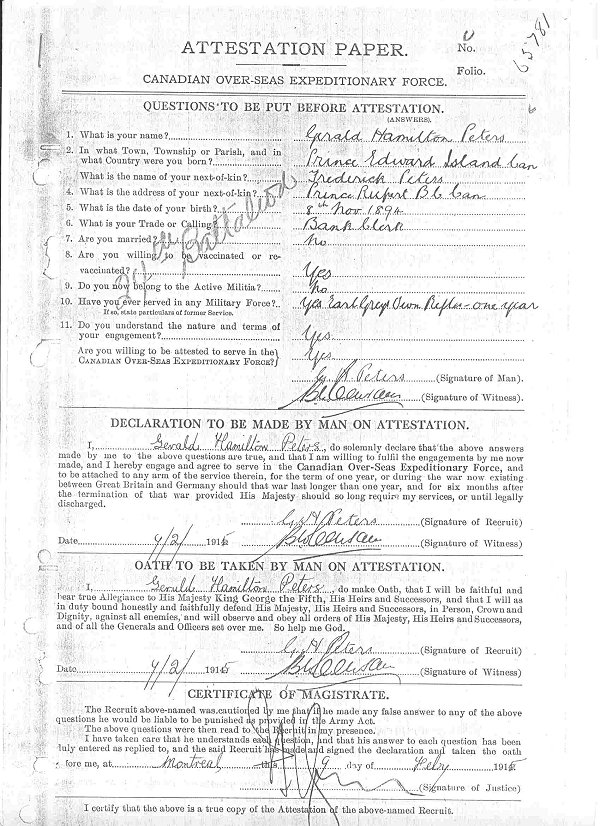 ATTESTATION PAPER.
No.
65781
Folio.
CANADIAN OVER-SEAS EXPEDITIONARY FORCE.
QUESTIONS TO BE PUT BEFORE ATTESTATION.
(ANSWERS).
1. What is your name? Gerald Hamilton Peters
2. In what Town, Township or Parish, and in
what Country were you born? Prince Edward Island Can
What is the name of your next-of-kin? Frederick Peters
4. What is the address of your next-of-kin? Prince Rupert B C Can
5. What is the date of your birth? 8th Nov 1894
6. What is your Trade or Calling? Bank Clerk
7. Are you married? No
8. Are you willing to be vaccinated or re-
vaccinated? Yes
9. Do you now belong to the Active Militia? No
10. Have you ever served in any Military Force? Yes Earl Greys Own Rifles - one year
If so, state particulars of former Service.
11. Do you understand the nature and terms of
your engagement? Yes
Are you willing to be attested to serve in the
CANADIAN OVER-SEAS EXPEDITIONARY FORCE? Yes
Battalion
G H Peters (Signature of Man).
(Signature of Witness).
DECLARATION TO BE MADE BY MAN ON ATTESTATION.
I, Gerald Hamilton Peters, do solemnly declare that the above answers
made by me to the above questions are true, and that I am willing to fulfil the engagements by me now
made, and I hereby engage and agree to serve in the Canadian Over-Seas Expeditionary Force, and
to be attached to any arm of the service therein, for the term of one year, or during the war now existing
between Great Britain and Germany should that war last longer than one year, and for six months after
the termination of that war provided His Majesty should so long require my services, or until legally
discharged.
G H Peters (Signature of Recruit)
Date 9/2/ 1915 (Signature of Witness)
OATH TO BE TAKEN BY MAN ON ATTESTATION.
I, Gerald Hamilton Peters, do make Oath, that I will be faithful and
bear true Allegiance to His Majesty King George the Fifth, His Heirs and Successors, and that I will as
in duty bound honestly and faithfully defend His Majesty, His Heirs and Successors, in Person, Crown and
Dignity, against all enemies, and will observe and obey all orders of His Majesty, His Heirs and Successors,
and of all the Generals and Officers set over me. So help me God.
G H Peters (Signature of Recruit)
Date 9/2/ 1915 (Signature of Witness)
CERTIFICATE OF MAGISTRATE.
The Recruit above-named was cautioned by me that if he made any false answer to any of the above
questions he would be liable to be punished as provided in the Army Act.
The above questions were then read to the Recruit in my presence.
I have taken care that he understands each question, and that his answer to each question has been
duly entered as replied to, and the said Recruit has made and signed the declaration and taken the oath
fore me, at Montreal this 9 day of Feby 1915
(Signature of Justice)
I certify that the above is a true copy of the Attestation of the above-named Recruit.